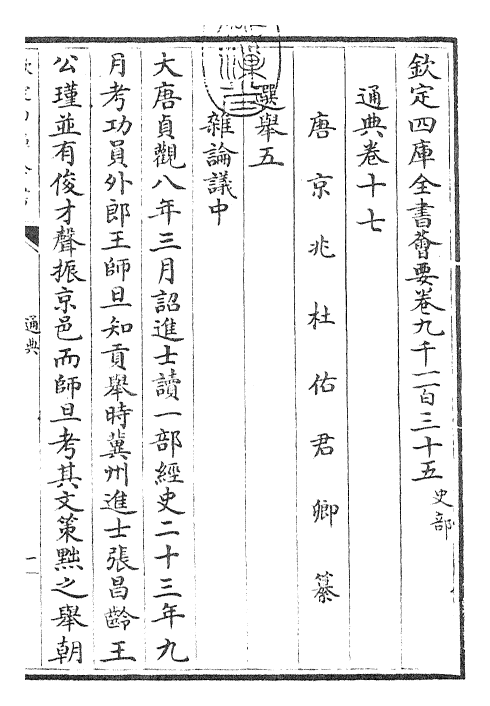 欽定四庫全書薈要卷九千一百三十五 史部
通典卷十七
唐京兆杜佑君卿纂
選舉五
雜論議中
大唐貞觀八年三月詔進士讀一部經史二十三年九
月考功員外郎王師旦知貢舉時冀州進士張昌齡王
公瑾並有俊才聲振京邑而師旦考其文策黜之舉朝
通典
一